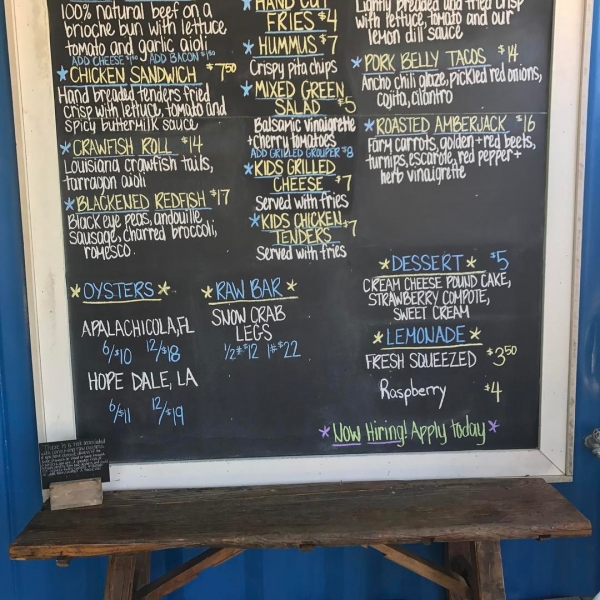 100% natural beef on a
brioche bun with lettuce
tomato and garlic aioli
ADD CHEESE $1.00 ADD BACON $1.50
*CHICKEN SANDWICH $7.50
Hand breaded tenders fried
crisp with lettuce, tomato and
spicy buttermilk sauce
*CRAWFISH ROLL $14
Louisiana crawfish tails,
tarragon aioli
*BLACKENED REDFISH $17
Black eye peas, andouille
sausage, charred broccoli,
romesco
HAND CUT
FRIES $4
*HUMMUS $7
Crispy pita chips
*MIXED GREEN
SALAD $5
Balsamic vinaigrette
+ cherry tomatoes
ADD GRILLED GROUPER $8
*KIDS GRILLED
CHEESE $7
Served with fries
*KIDS CHICKEN
TENDERS $7
Served with fries
Lightly breaded and fried crisp
with lettuce tomato and our
lemon dill sauce
*PORK BELLY TACOS $14
Ancho chili glaze, pickled red onions,
cojita, cilantro
*ROASTED AMBERJACK $16
Farm carrots, golden + red beets,
turnips, escarole, red pepper +
herb vinaigrette
*OYSTERS*
APALACHICOLA, FL
6/$10 12/$18
HOPE DALE, LA
6/$11 12/$19
*RAW BAR*
SNOW CRAB
LEGS
1/2# $12 1# $22
*DESSERT* $5
CREAM CHEESE POUND CAKE,
STRAWBERRY COMPOTE,
SWEET CREAM
*LEMONADE*
FRESH SQUEEZED $3.50
Raspberry $4
*Now Hiring! Apply today*
There is a risk associated